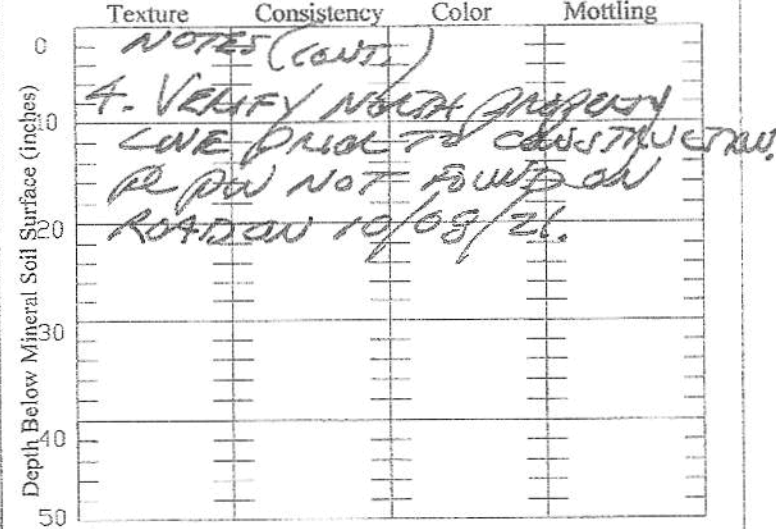 Texture Consistency Color Mottling
Depth Below Mineral Soil Surface (inches)
0
NOTES (CONT.)
4. VERIFY NORTH PROPERTY
10
LINE PRIOR TO CONSTRUCTION.
PIN NOT FOUND ON
20
ROAD ON 10/08/21.
30
40
50